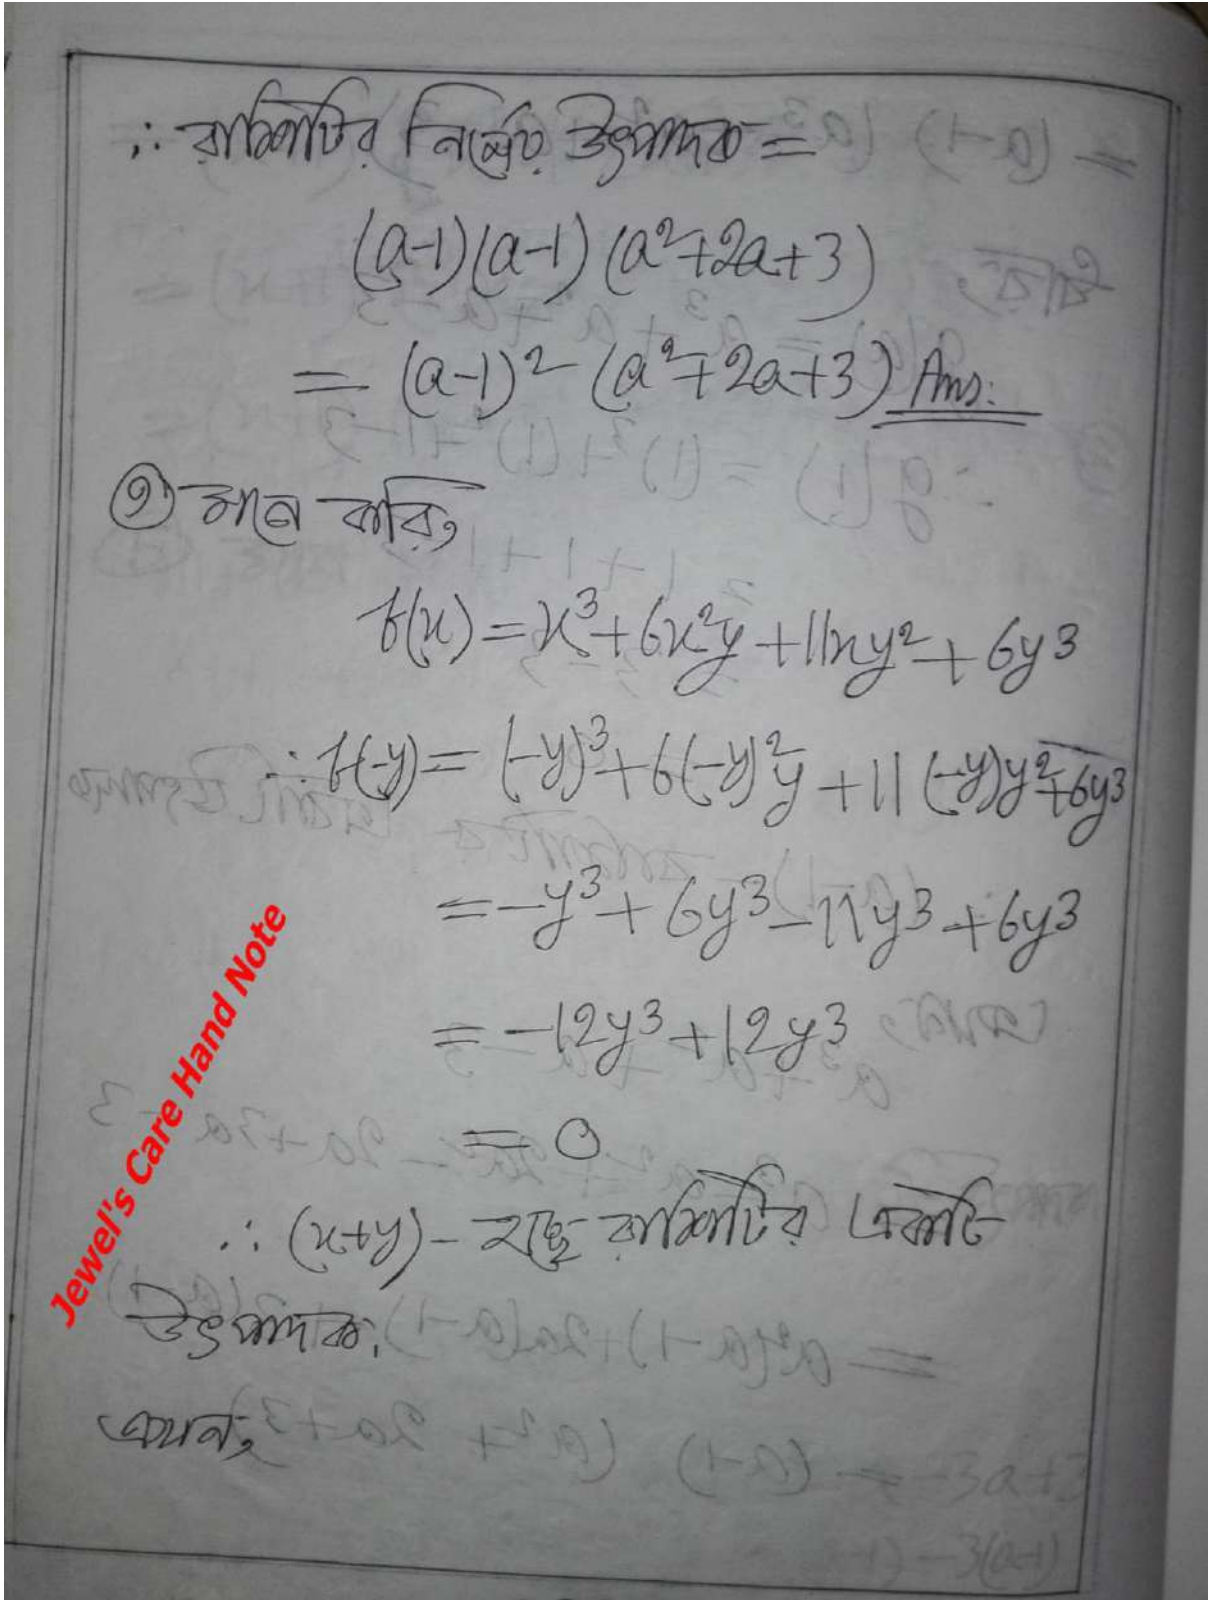 ∴ রাশিটির নির্ণেয় উৎপাদক =
(a-1)(a-1)(a²+2a+3)
= (a-1)² (a²+2a+3) Ans:
৩) মনে করি,
f(x) = x³+6x²y+11xy²+6y³
∴ f(-y) = (-y)³+6(-y)²y+11(-y)y²+6y³
= -y³+6y³-11y³+6y³
= -12y³+12y³
= 0
∴ (x+y) - হচ্ছে রাশিটির একটি
উৎপাদক।
এখন,
Jewel's Care Hand Note